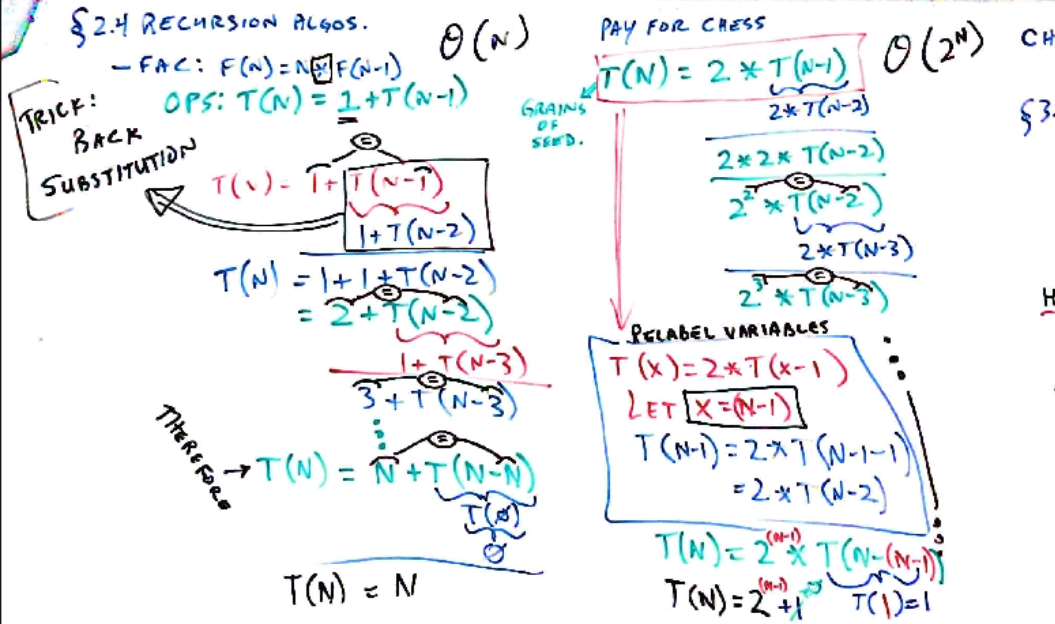 §2.4 RECURSION ALGOS.
θ(N)
- FAC: F(N)=N*F(N-1)
OPS: T(N) = 1+T(N-1)
TRICK:
BACK
SUBSTITUTION
=
T(N) = 1+T(N-1)
1+T(N-2)
T(N) = 1+1+T(N-2)
=
= 2+T(N-2)
1+T(N-3)
=
3+T(N-3)
=
THEREFORE → T(N) = N+T(N-N)
T(Ø)
Ø
T(N) = N
PAY FOR CHESS
T(N) = 2*T(N-1)
θ(2^N)
GRAINS
OF
SEED.
2*T(N-2)
2*2*T(N-2)
=
2^2*T(N-2)
2*T(N-3)
=
2^3*T(N-3)
RELABEL VARIABLES
T(x)=2*T(x-1)
LET x=(N-1)
T(N-1)=2*T(N-1-1)
=2*T(N-2)
T(N)=2^(N-1)*T(N-(N-1))
T(N)=2^(N-1)+1
T(1)=1
CH
§3.
H